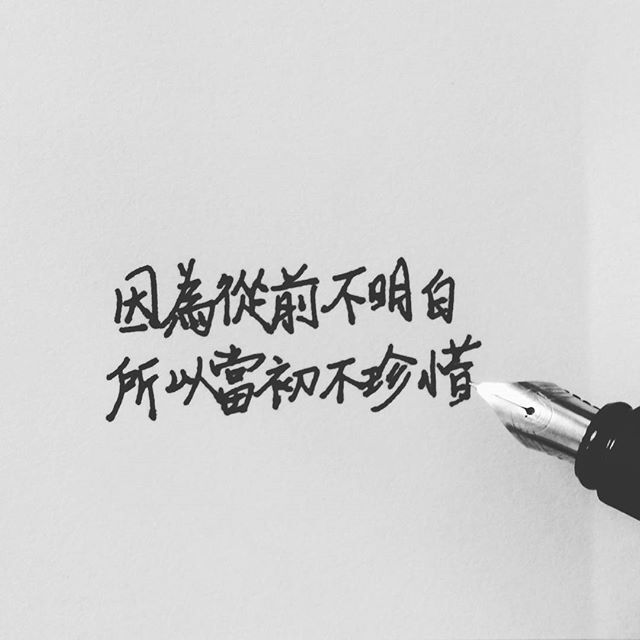 因為從前不明白
所以當初不珍惜